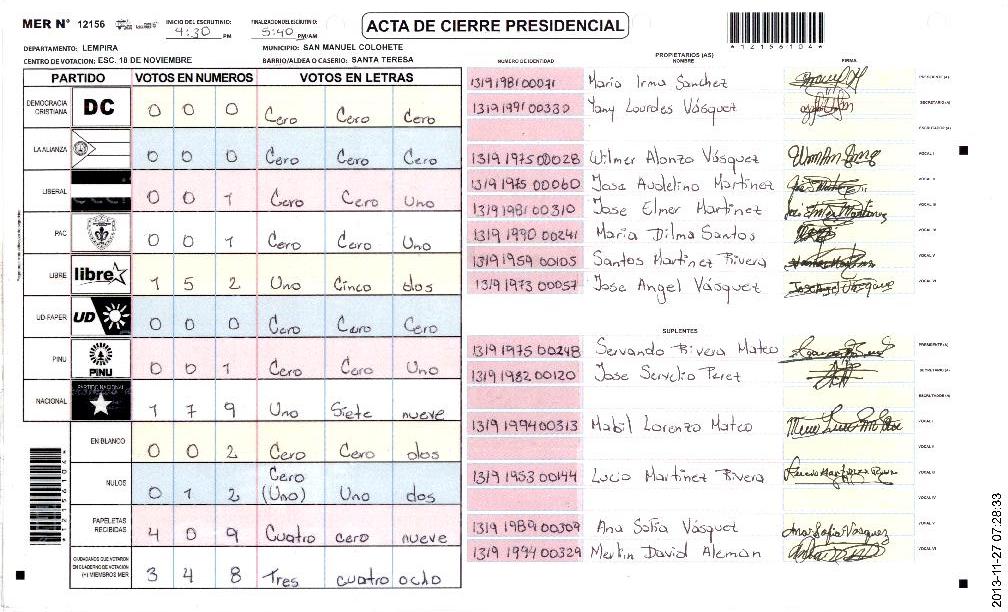 MER N° 12156
INICIO DEL ESCRUTINIO: 4:30 PM
FINALIZACION DEL ESCRUTINIO: 5:40 PM/AM
ACTA DE CIERRE PRESIDENCIAL
*1215610 4*
DEPARTAMENTO: LEMPIRA
MUNICIPIO: SAN MANUEL COLOHETE
CENTRO DE VOTACION: ESC. 18 DE NOVIEMBRE
BARRIO/ALDEA O CASERIO: SANTA TERESA
PARTIDO VOTOS EN NUMEROS VOTOS EN LETRAS
DEMOCRACIA CRISTIANA DC 0 0 0 Cero Cero Cero
LA ALIANZA 0 0 0 Cero Cero Cero
LIBERAL 0 0 1 Cero Cero Uno
PAC 0 0 1 Cero Cero Uno
LIBRE libre 1 5 2 Uno Cinco dos
UD-FAPER UD 0 0 0 Cero Cero Cero
PINU PINU 0 0 1 Cero Cero Uno
NACIONAL PARTIDO NACIONAL 1 7 9 Uno Siete nueve
EN BLANCO 0 0 2 Cero Cero dos
NULOS 0 1 2 Cero (Uno) Uno dos
PAPELETAS RECIBIDAS 4 0 9 Cuatro cero nueve
CIUDADANOS QUE VOTARON EN CUADERNO DE VOTACION (+) MIEMBROS MER 3 4 8 Tres cuatro ocho
PROPIETARIOS (AS)
NUMERO DE IDENTIDAD NOMBRE FIRMA
1319 1981 00071 Maria Irma Sanchez PRESIDENTE (A)
1319 1991 00330 Yany Lourdes Vásquez SECRETARIO (A)
ESCRUTADOR (A)
1319 1975 00028 Wilmer Alonzo Vásquez VOCAL I
1319 1975 00060 Jose Audelino Martinez VOCAL II
1319 1981 00310 Jose Elmer Martinez VOCAL III
1319 1990 00241 Maria Dilma Santos VOCAL IV
1319 1959 00105 Santos Martinez Rivera VOCAL V
1319 1973 00057 Jose Angel Vásquez VOCAL VI
SUPLENTES
1319 1975 00248 Servando Rivera Mateo PRESIDENTE (A)
1319 1982 00120 Jose Servelio Perez SECRETARIO (A)
ESCRUTADOR (A)
1319 1994 00313 Mabil Lorenzo Mateo VOCAL I
VOCAL II
1319 1953 00144 Lucio Martinez Rivera VOCAL III
VOCAL IV
1319 1989 00309 Ana Sofia Vásquez Ana Sofia Vásquez VOCAL V
1319 1994 00329 Merlin David Aleman VOCAL VI
2013-11-27 07:28:33